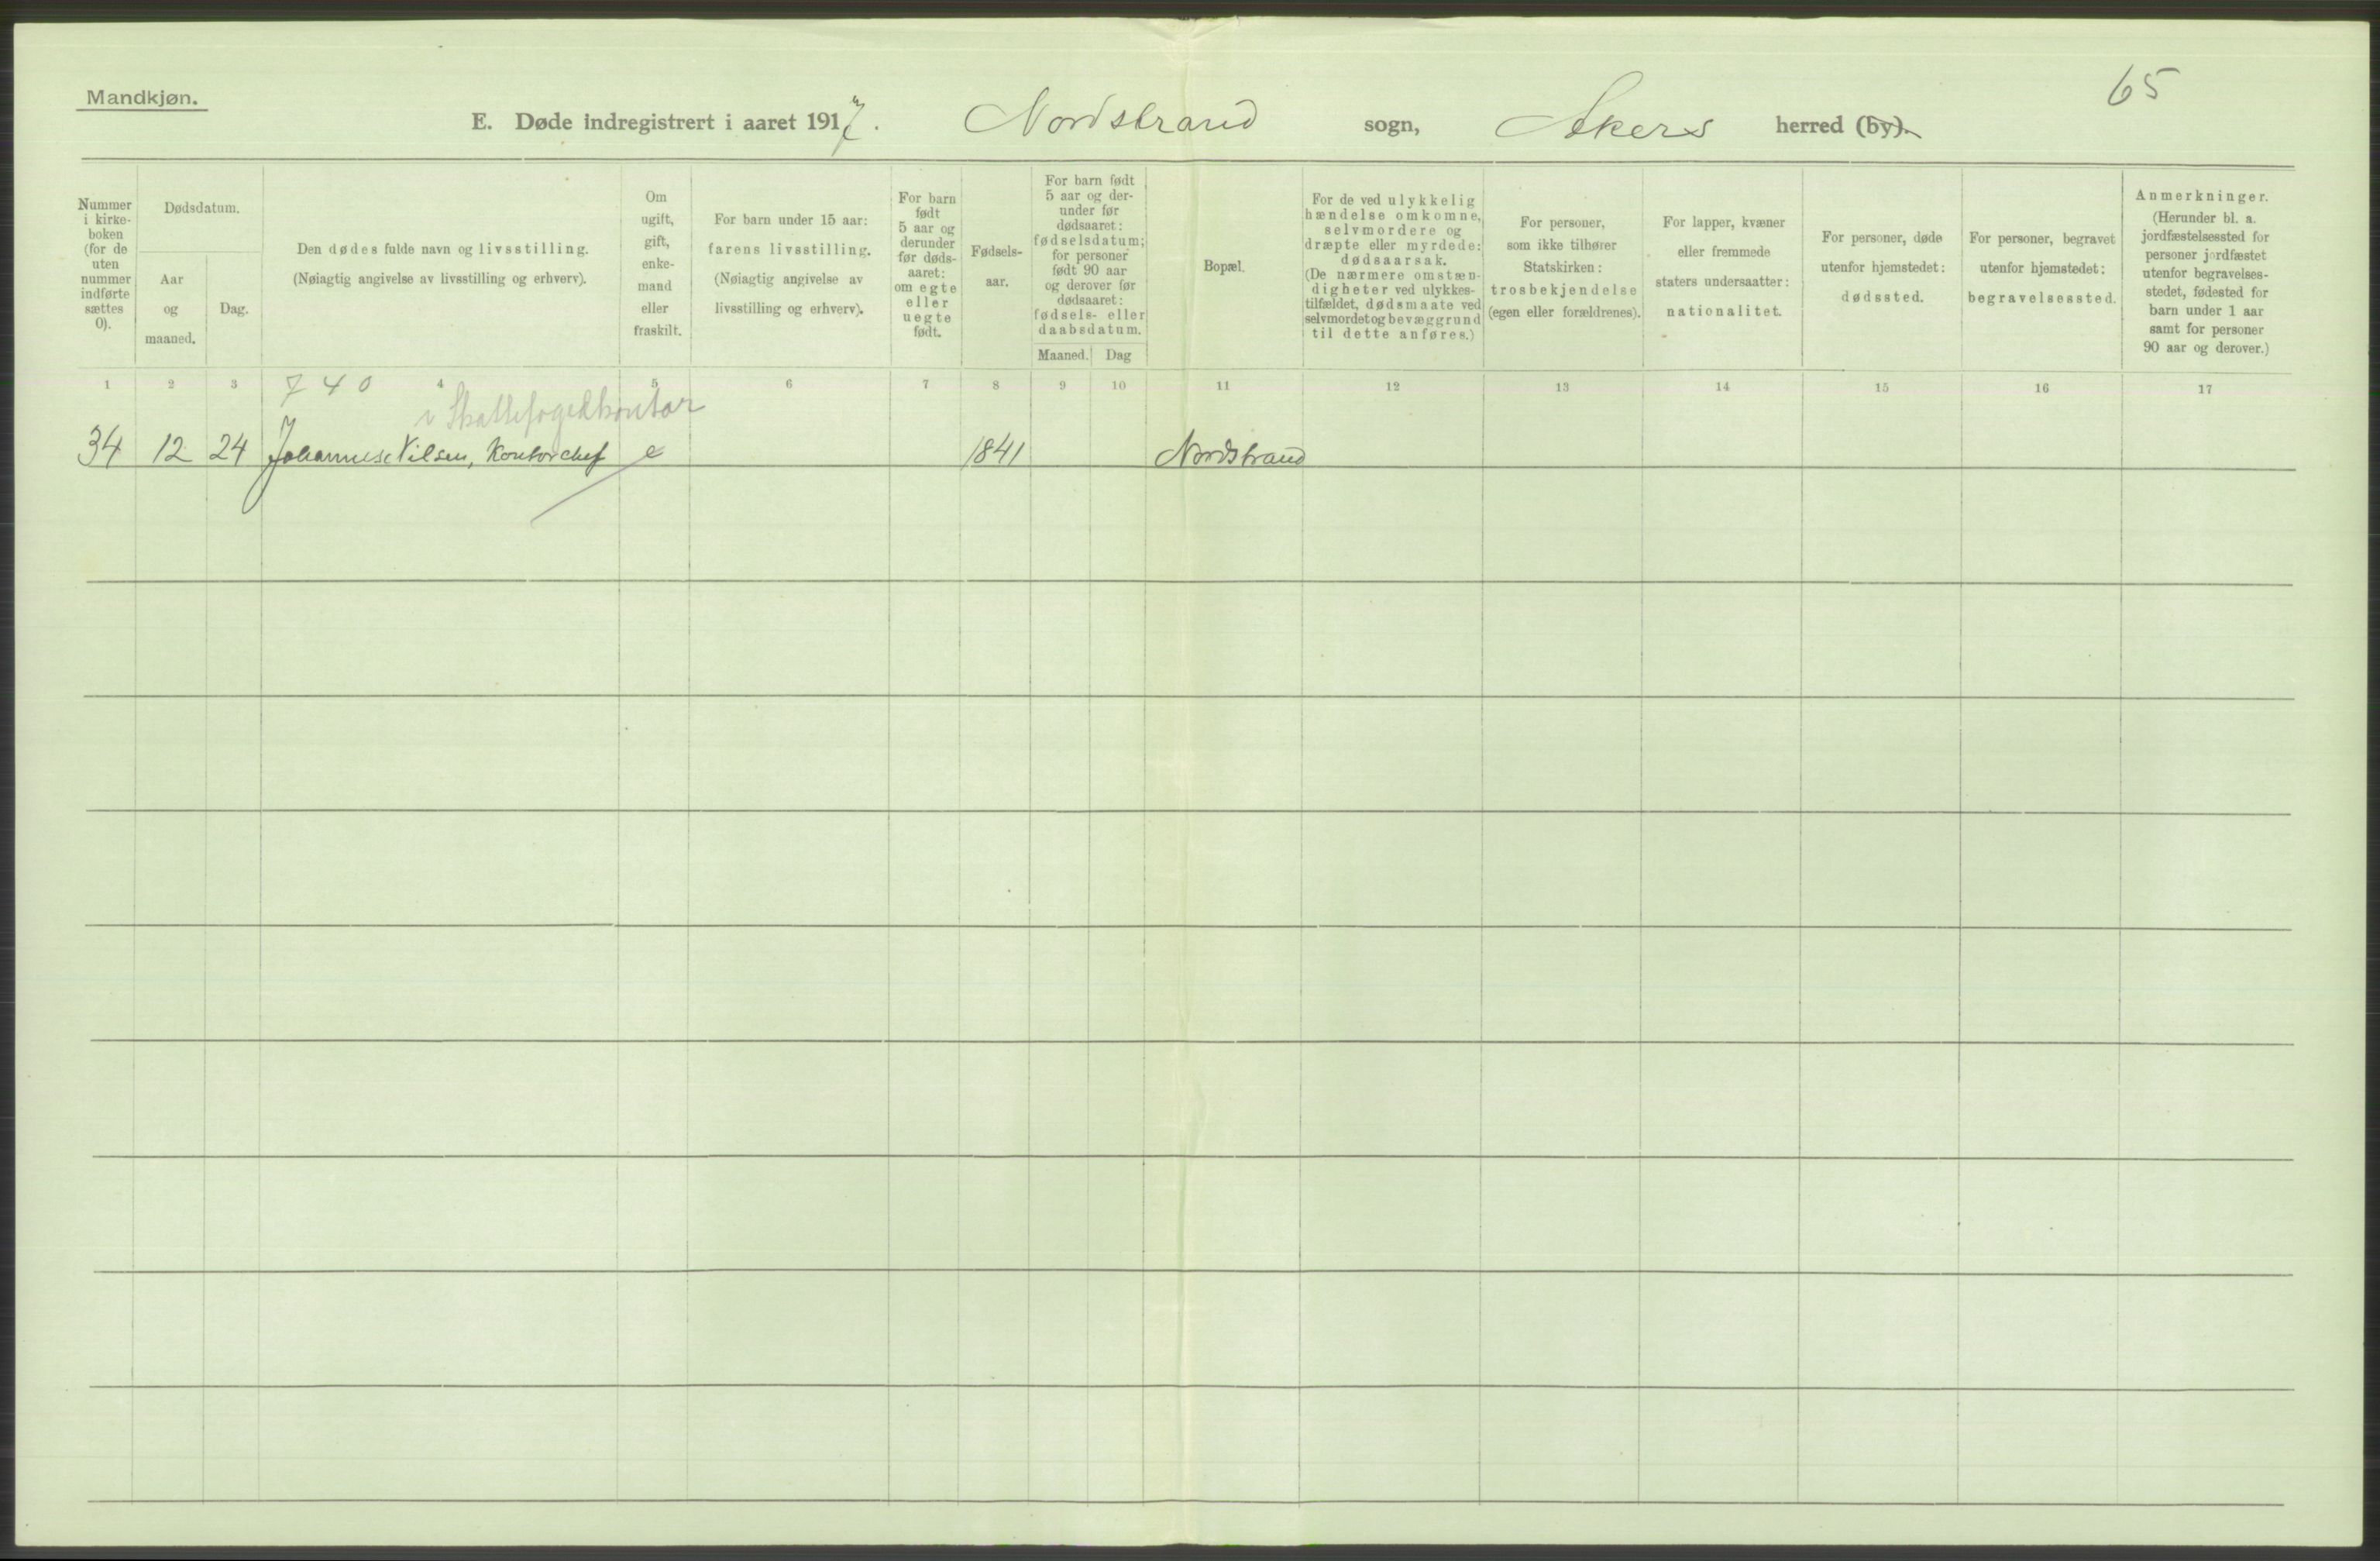 65
Mandkjøn.
E. Døde indregistrert i aaret 1917. Nordstrand sogn, Akers herred (by).
Nummer
i kirke-
boken
(for de
uten
nummer
indførte
sættes
0).
Dødsdatum.
Aar
og
maaned.
Dag.
Den dødes fulde navn og livsstilling.
(Nøiagtig angivelse av livsstilling og erhverv).
Om
ugift,
gift,
enke-
mand
eller
fraskilt.
For barn under 15 aar:
farens livsstilling.
(Nøiagtig angivelse av
livsstilling og erhverv).
For barn
født
5 aar og
derunder
før døds-
aaret:
om egte
eller
uegte
født.
Fødsels-
aar.
For barn født
5 aar og der-
under før
dødsaaret:
fødselsdatum;
for personer
født 90 aar
og derover før
dødsaaret:
fødsels- eller
daabsdatum.
Maaned. Dag
Bopæl.
For de ved ulykkelig
hændelse omkomne,
selvmordere og
dræpte eller myrdede:
dødsaarsak.
(De nærmere omstæn-
digheter ved ulykkes-
tilfældet, dødsmaate ved
selvmordet og bevæggrund
til dette anføres.)
For personer,
som ikke tilhører
Statskirken:
trosbekjendelse
(egen eller forældrenes).
For lapper, kvæner
eller fremmede
staters undersaatter:
nationalitet.
For personer, døde
utenfor hjemstedet:
dødssted.
For personer, begravet
utenfor hjemstedet:
begravelsessted.
Anmerkninger.
(Herunder bl. a.
jordfæstelsessted for
personer jordfæstet
utenfor begravelses-
stedet, fødested for
barn under 1 aar
samt for personer
90 aar og derover.)
1 2 3 4 5 6 7 8 9 10 11 12 13 14 15 16 17
740
i Skattefogedkontor
34 12 24 Johannes Nilsen, Kontorchef e 1841 Nordstrand